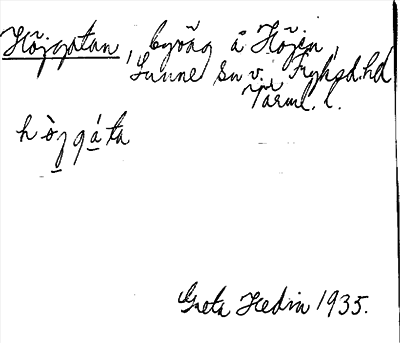 Höjgatan, byväg å Höjen,
Sunne sn v. Fryksd. hd
Värml. l.
hòjgáta
Greta Hedin 1935.